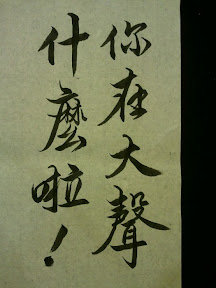 你在大聲
什麼啦！